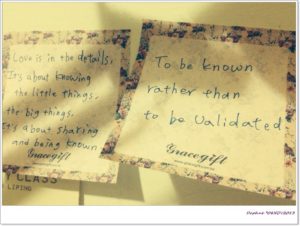 Love is in the details.
It's about knowing
the little things.
the big things.
It's about sharing
and being known
Gracegift
CLASS
To be known
rather than
to be validated
Gracegift